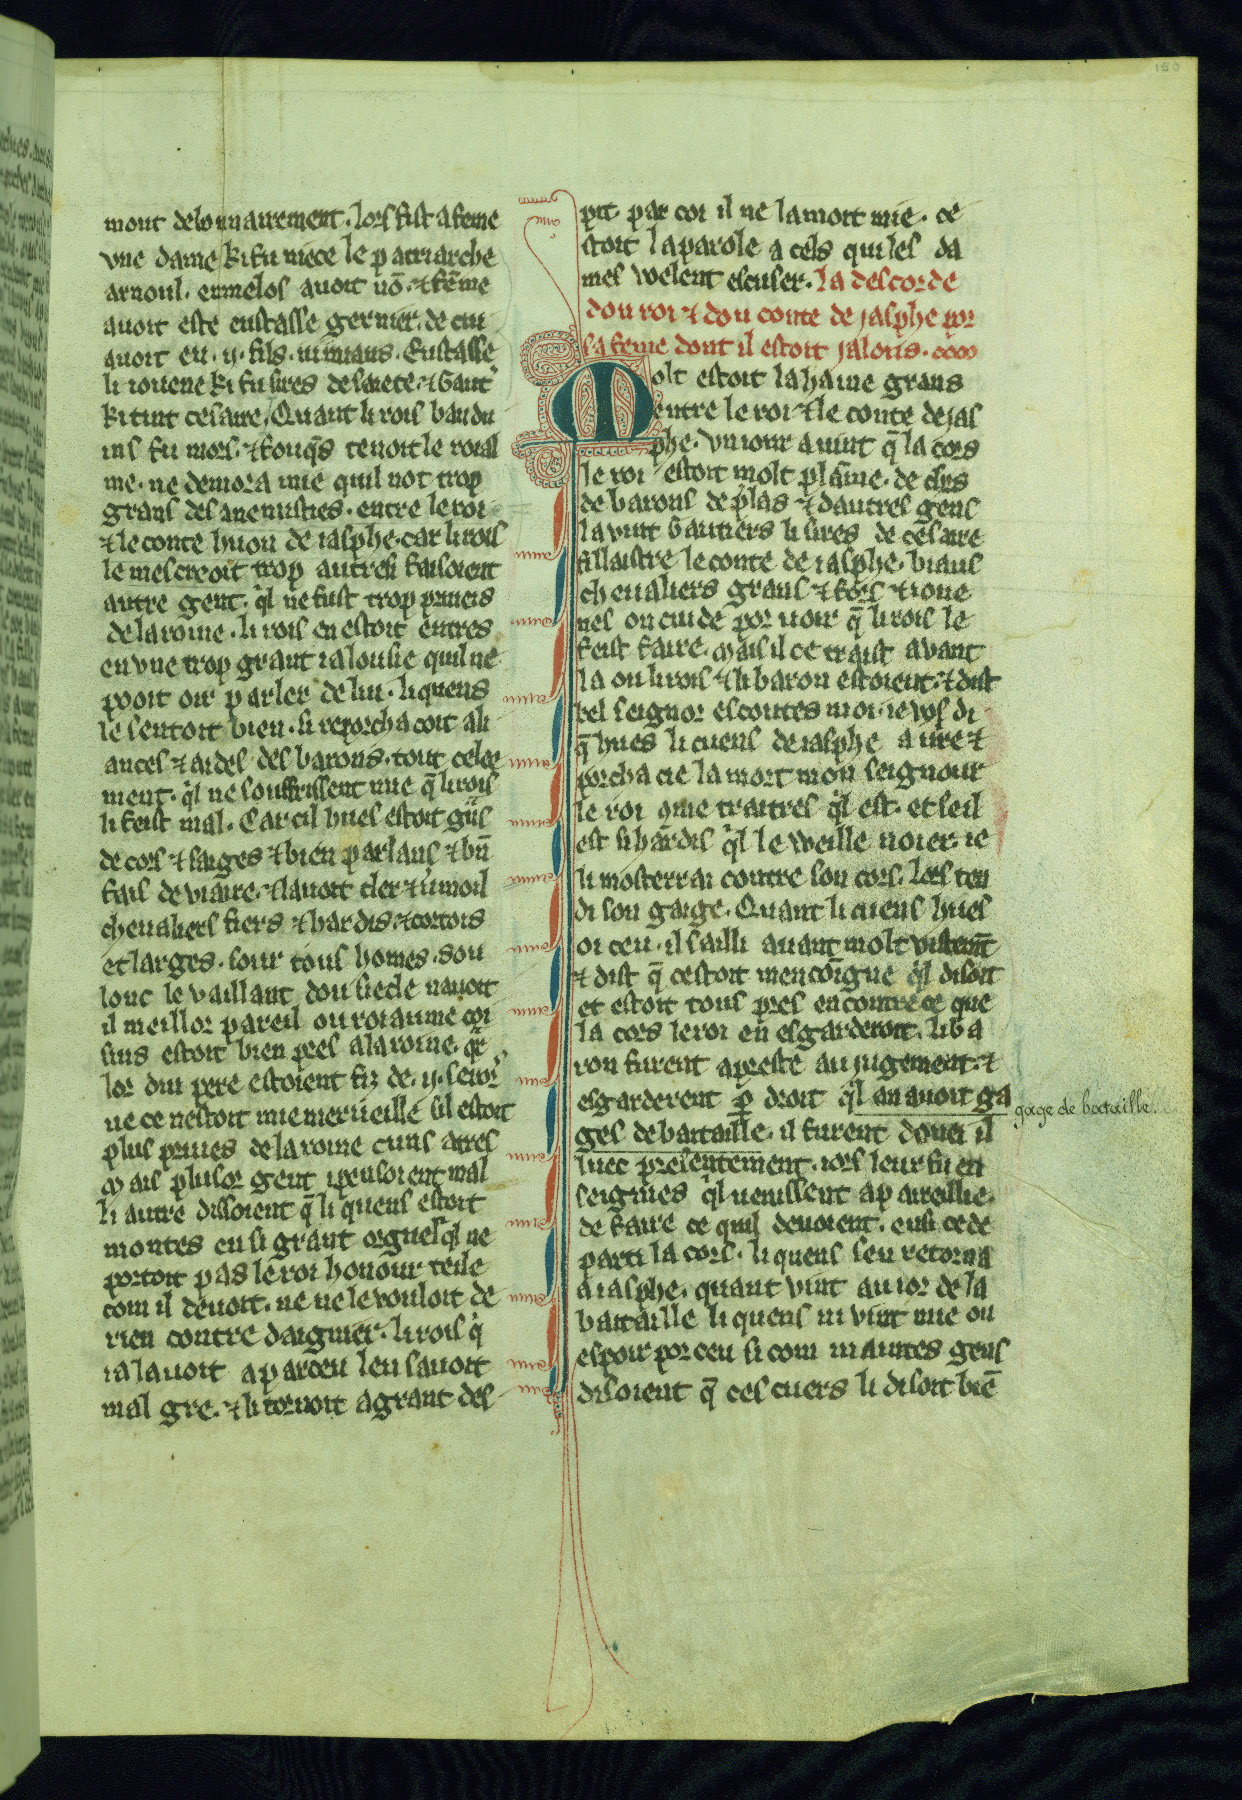 mout debounairement. lors fist a feme
vne dame ki fu niece le patriarche
arnoul. enmelos auoit nō. ⁊ fēme
auoit este eustasse gernier. de cui
auoit eu .ij. fils. iumiaus. Eustasse
li iouene ki fu sires de saiete. ⁊ Gaut᷑
ki tint cesaire. Quant li rois baudu
ins fu mors. ⁊ fouq̄s tenoit le roial
me. ne demora mie quil not trop
grans des anemisties. entre le roi
⁊ le conte huon de iasphe. car li rois
le mescreoit trop autresi faisoient
autre gent. q̓l ne fust trop priueis
de la roine. li rois en estoit entres
en vne trop grant ialousie quil ne
pooit oir parler de lui. li quens
le sentoit bien. si reporchacoit ali
ances ⁊ aides des barons. tout celee
ment. q̓l ne souffrissent mie q̄ li rois
li feist mal. Car cil hues estoit gͣns
de cors ⁊ saiges ⁊ bien parlans ⁊ bn̄
fais de viaire. ⁊ lauoit cler ⁊ v̓moil
cheualiers fiers ⁊ hardis. ⁊ cortois
et larges. sour tous homes. sou
lonc le vaillant dou siecle nauoit
il meillor pareil ou roiaume coi
sins estoit bien pres a la roine. qͣr
lor dui pere estoient fiz de .ij. seros
ne ce nestoit mie merueille sil estoit
plus priues de la roine cuns atres
Mais plusor gent i pensoient mal
li autre dissoient q̄ li quens estoit
montes en si grant orguel q̓l ne
portoit pas le roi honour teile
com il deuoit. ne ne le vouloit de
rien contre daignier. li rois q̓
ia lauoit aparceu len sauoit
mal gre. ⁊ li tornoit a grant des
pit. par coi il ne lamoit mie. ce
stoit la parole a cels qui les da
mes welent escuser. la descorde
dou roi ⁊ dou conte de jasphe por
sa feme dont il estoit jalous.
Molt estoit la haine grans
entre le roi ⁊ le conte de jas
phe. Vn iour auint q̄ la cors
le roi estoit molt plāine. de clers
de barons de p̄las ⁊ dautres gens
la vint Gautiers li sires de cesaire
fillaistre le conte de iasphe. biaus
cheualiers grans ⁊ fors ⁊ ioue
nes on cuide por uoir q̄ li rois le
feist faire. Mais il ce traist auant
la ou li rois ⁊ li baron estoient. ⁊ dist
bel seignor escoutes moi. ie vos di
q̄ hues li cuens de iasphe a iure ⁊
porchacie la mort mon seignour
le roi 9me traitres q̓l est. et se il
est si hardis q̓l le weille noier. ie
li mosterrai contre son cors. lors ten
di son gaige. Quant li cuens hues
oi ceu. il sailli auant molt vistem̄t
⁊ dist q̄ cestoit mencoingne q̓l disoit
et estoit tous pres encontre ce que
la cors le roi en esgarderoit. li ba
ron furent apreste au jugement. ⁊
esgarderent ꝑ droit q̓l an auoit ga
gage de bataille.
ges de bataille. il furent donei il
luec presentement. iors leur fu en
seignies q̓l uenissent apareillie.
de faire ce quil deuoient. ensi ce de
parti la cors. li quens sen retorna
a iasphe. quant vint au ior de la
bataille li quens ni vint mie ou
espoir por ceu si com maintes gens
disoient q̄ ces cuers li disoit biē